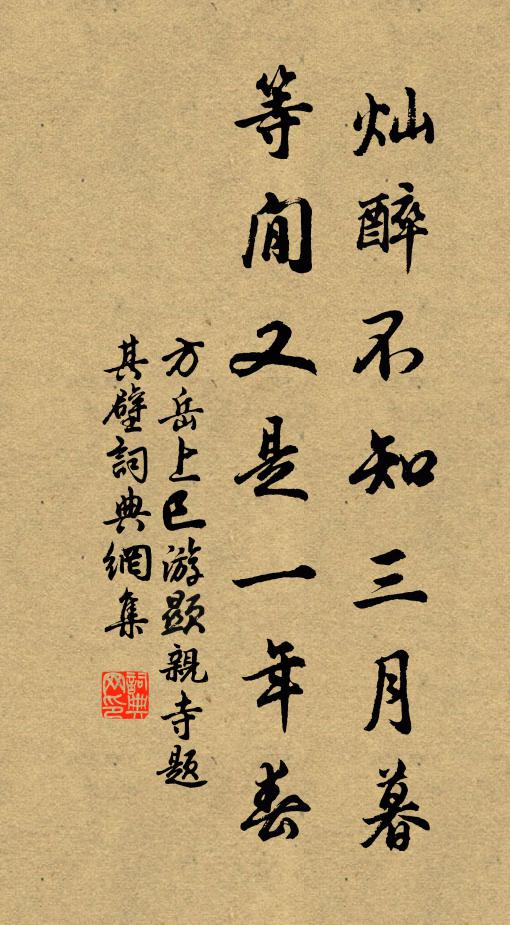 灿醉不知三月暮
等閒又是一年春
方岳上巳游顯親寺題
其壁詞典網集
詞典
网印